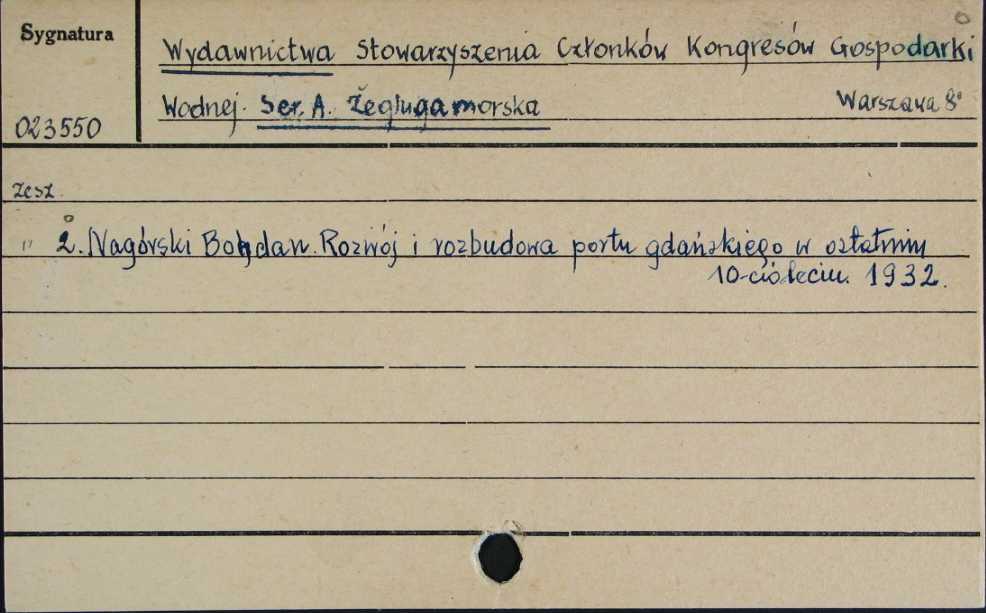 Sygnatura
Wydawnictwa Stowarzyszenia Członków Kongresów Gospodarki
Wodnej. Ser. A. Żegluga morska Warszawa 8°
023550
zesz.
" 2. Nagórski Bohdan. Rozwój i rozbudowa portu gdańskiego w ostatnim
10-cioleciu. 1932.